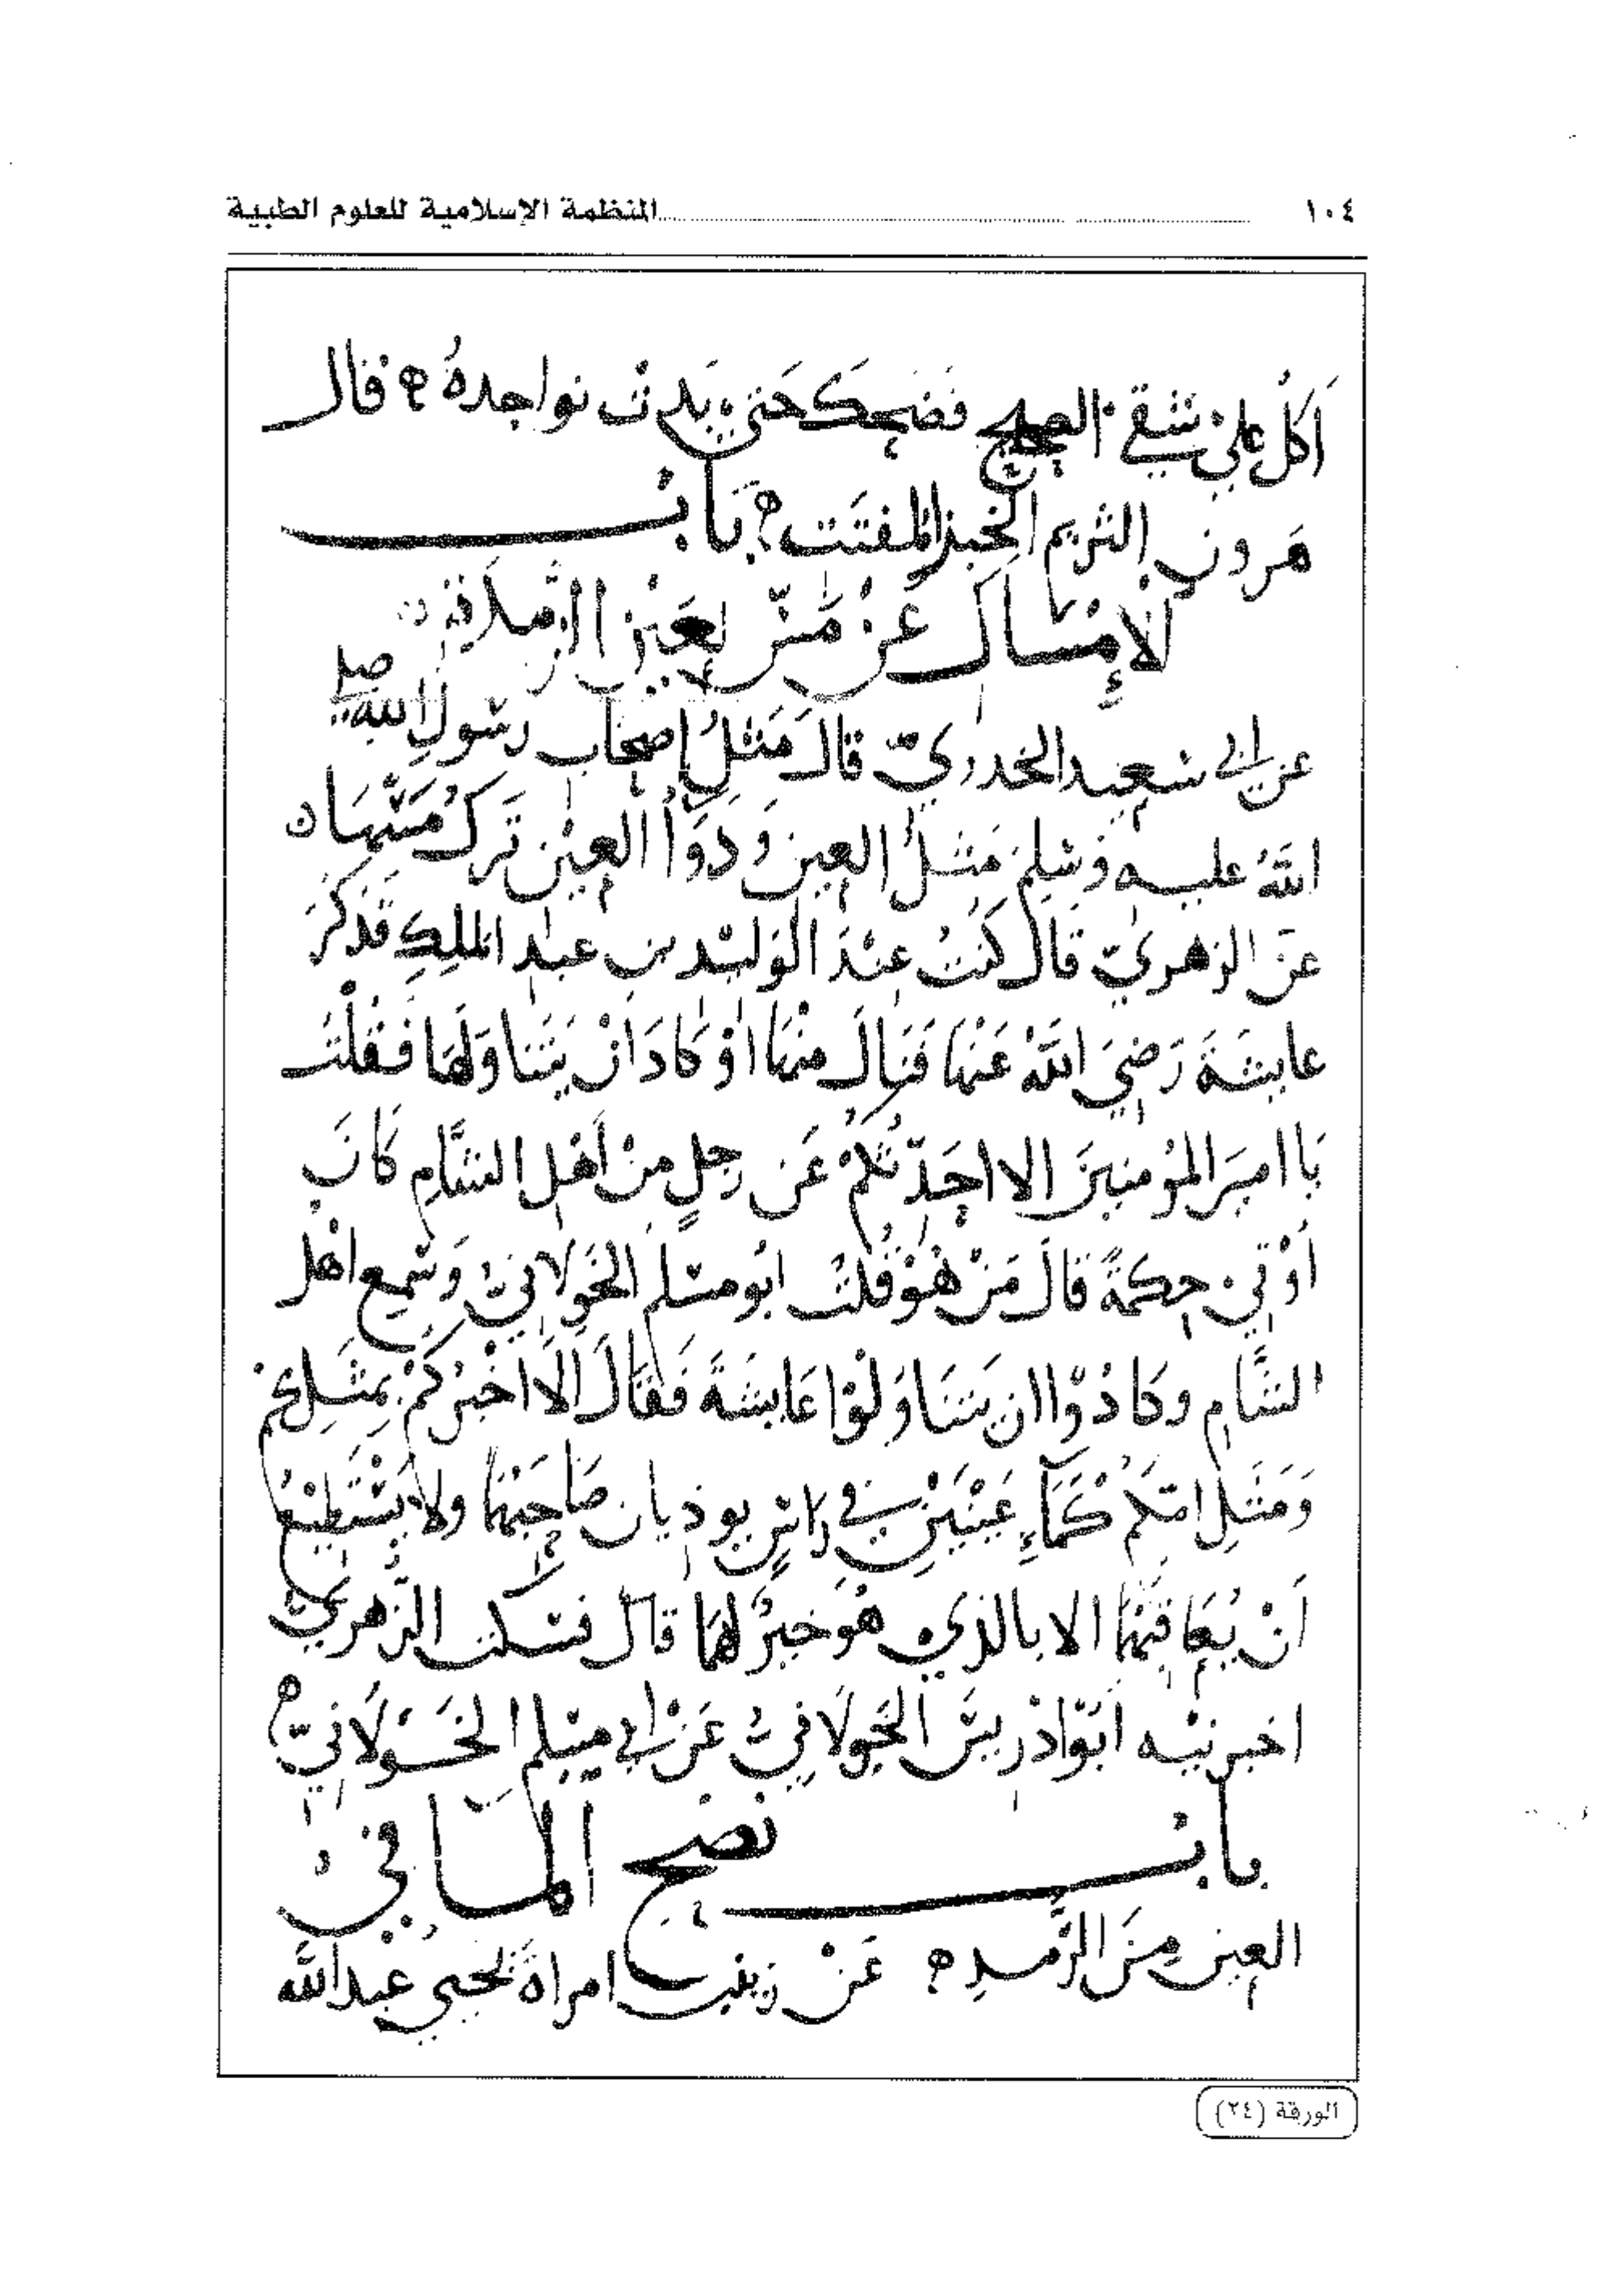 ١٠٤ المنظمة الإسلامية للعلوم الطبية
اَكلُ على شقي الصحيح فضحِكَ حَتى بَدتْ نواجدهُ ه قال
هرون الثريم الخبز المفتَت ه بابٌ
الإِمْسَاك عَنْ مَسّ العَيْنِ الرّمِدة
عن ابي سَعِيد الخدريّ قالَ مَثلُ اصحاب رسَول الله صلى
اللهُ عليه وسلم مَثلُ العين وَدَوَاُ العينْ تَركُ مَسّهَا ن
عن الزهريّ قال كنتُ عِنْدَ الوَليد بن عبد الملكِ فَذكَرَ
عايشَةَ رَضيَ اللهُ عَنهَا فَنَالَ منْهَا اوْ كَادَ انْ يَتَنَاوَلَهَا فَقلْتُ
يَا اميَر المؤمنينَ الا احَدّثكمْ عَن رجلٍ منْ اَهل الشَّامِ كَانَ
اَوْتي حِكمَةً قالَ مَنْ هُوَ قُلتُ ابُو مسْلم الخَوْلانيُّ وَسَمِع اهْل
الشَّامِ وكادُوْا ان يَتنَاوَلوْا عَايشَةَ فَقَالَ الَا اخْبركمْ بمثَلى
وَمَثَل امّكمْ كَمَاءِ عَينَيْنِ في رَاسٍ يوذيان صَاحِبَهُمَا ولا يَسْتَطيْعُ
اَنْ يُعَاقبَهُمَا الا بالذي هُوَ خيرٌ لهُمَا قال فسَكت الزُّهريُّ
اخبرنيْه ابُوْ ادْريسَ الخَوْلَانيُّ عَنْ ابي مسْلم الخَوْلَانيّ ه
بابٌ نضح المَا في
العين منَ الرَّمَدِ ه عَنْ زينب امراةَ عبد الله
الورقة (٢٤)